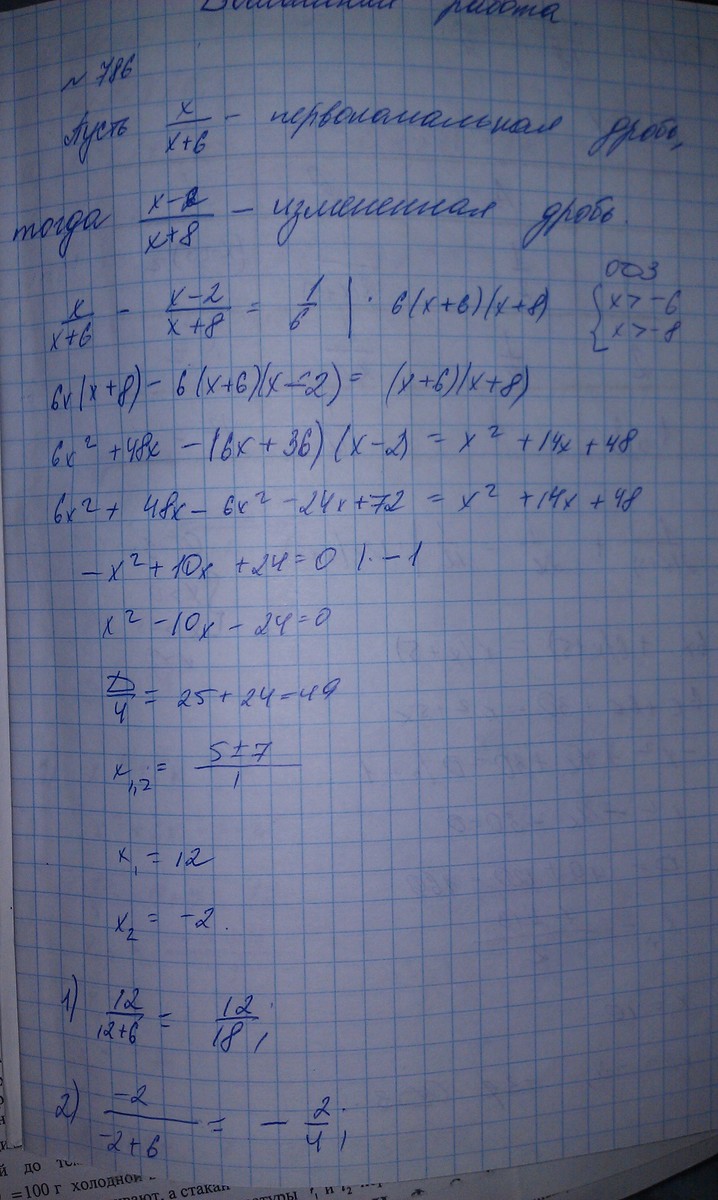 Домашняя работа
№ 786
Пусть x/(x+6) - первоначальная дробь,
тогда (x-2)/(x+8) - измененная дробь.
x/(x+6) - (x-2)/(x+8) = 1/6 | · 6(x+6)(x+8)
ОДЗ
{ x > -6
x > -8
6x(x+8) - 6(x+6)(x-2) = (x+6)(x+8)
6x² + 48x - (6x+36)(x-2) = x² + 14x + 48
6x² + 48x - 6x² - 24x + 72 = x² + 14x + 48
-x² + 10x + 24 = 0 | · -1
x² - 10x - 24 = 0
D/4 = 25 + 24 = 49
x₁,₂ = (5 ± 7)/1
x₁ = 12
x₂ = -2.
1) 12/(12+6) = 12/18;
2) -2/(-2+6) = - 2/4;
й до
= 100 г холодной
ивают, а стакан